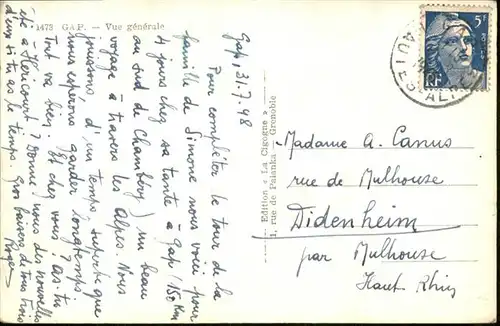 1473 GAP. - Vue générale
Gap, 31.7.48
Pour compléter le tour de la
famille de Simone nous voici pour
4 jours chez sa tante à Gap (150 Km
au sud de Chambéry) un beau
voyage à travers les Alpes. Nous
jouissons d'un temps superbe que
nous espérons garder longtemps.
Tout va bien. Et chez vous, as-tu
été à Héricourt ? Donne-nous des nouvelles
si tu as le temps. Gros baisers de tous trois
Roger
Edition « La Cigogne »
1, rue de Palanka - Grenoble
5F
RF
HAUTES-ALPES
Madame A. Canus
rue de Mulhouse
Didenheim
par Mulhouse
Haut Rhin